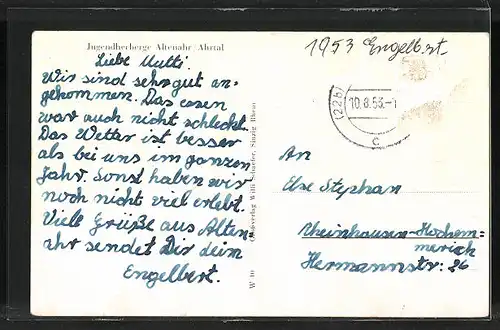 Jugendherberge Altenahr Ahrtal
Liebe Mutti!
Wir sind sehr gut an-
gekommen. Das essen
war auch nicht schlecht.
Das Wetter ist besser
als bei uns im ganzen
Jahr. Sonst haben wir
noch nicht viel erlebt.
Viele Grüße aus Alten-
ahr sendet Dir dein
Engelbert.
W 10
Willi Schaefer, Sinzig Rhein
1953 Engelbert
(22b)
10.8.53.-1
c
An
Else Stephan
Rheinhausen-Hochem-
merich
Hermannstr: 26